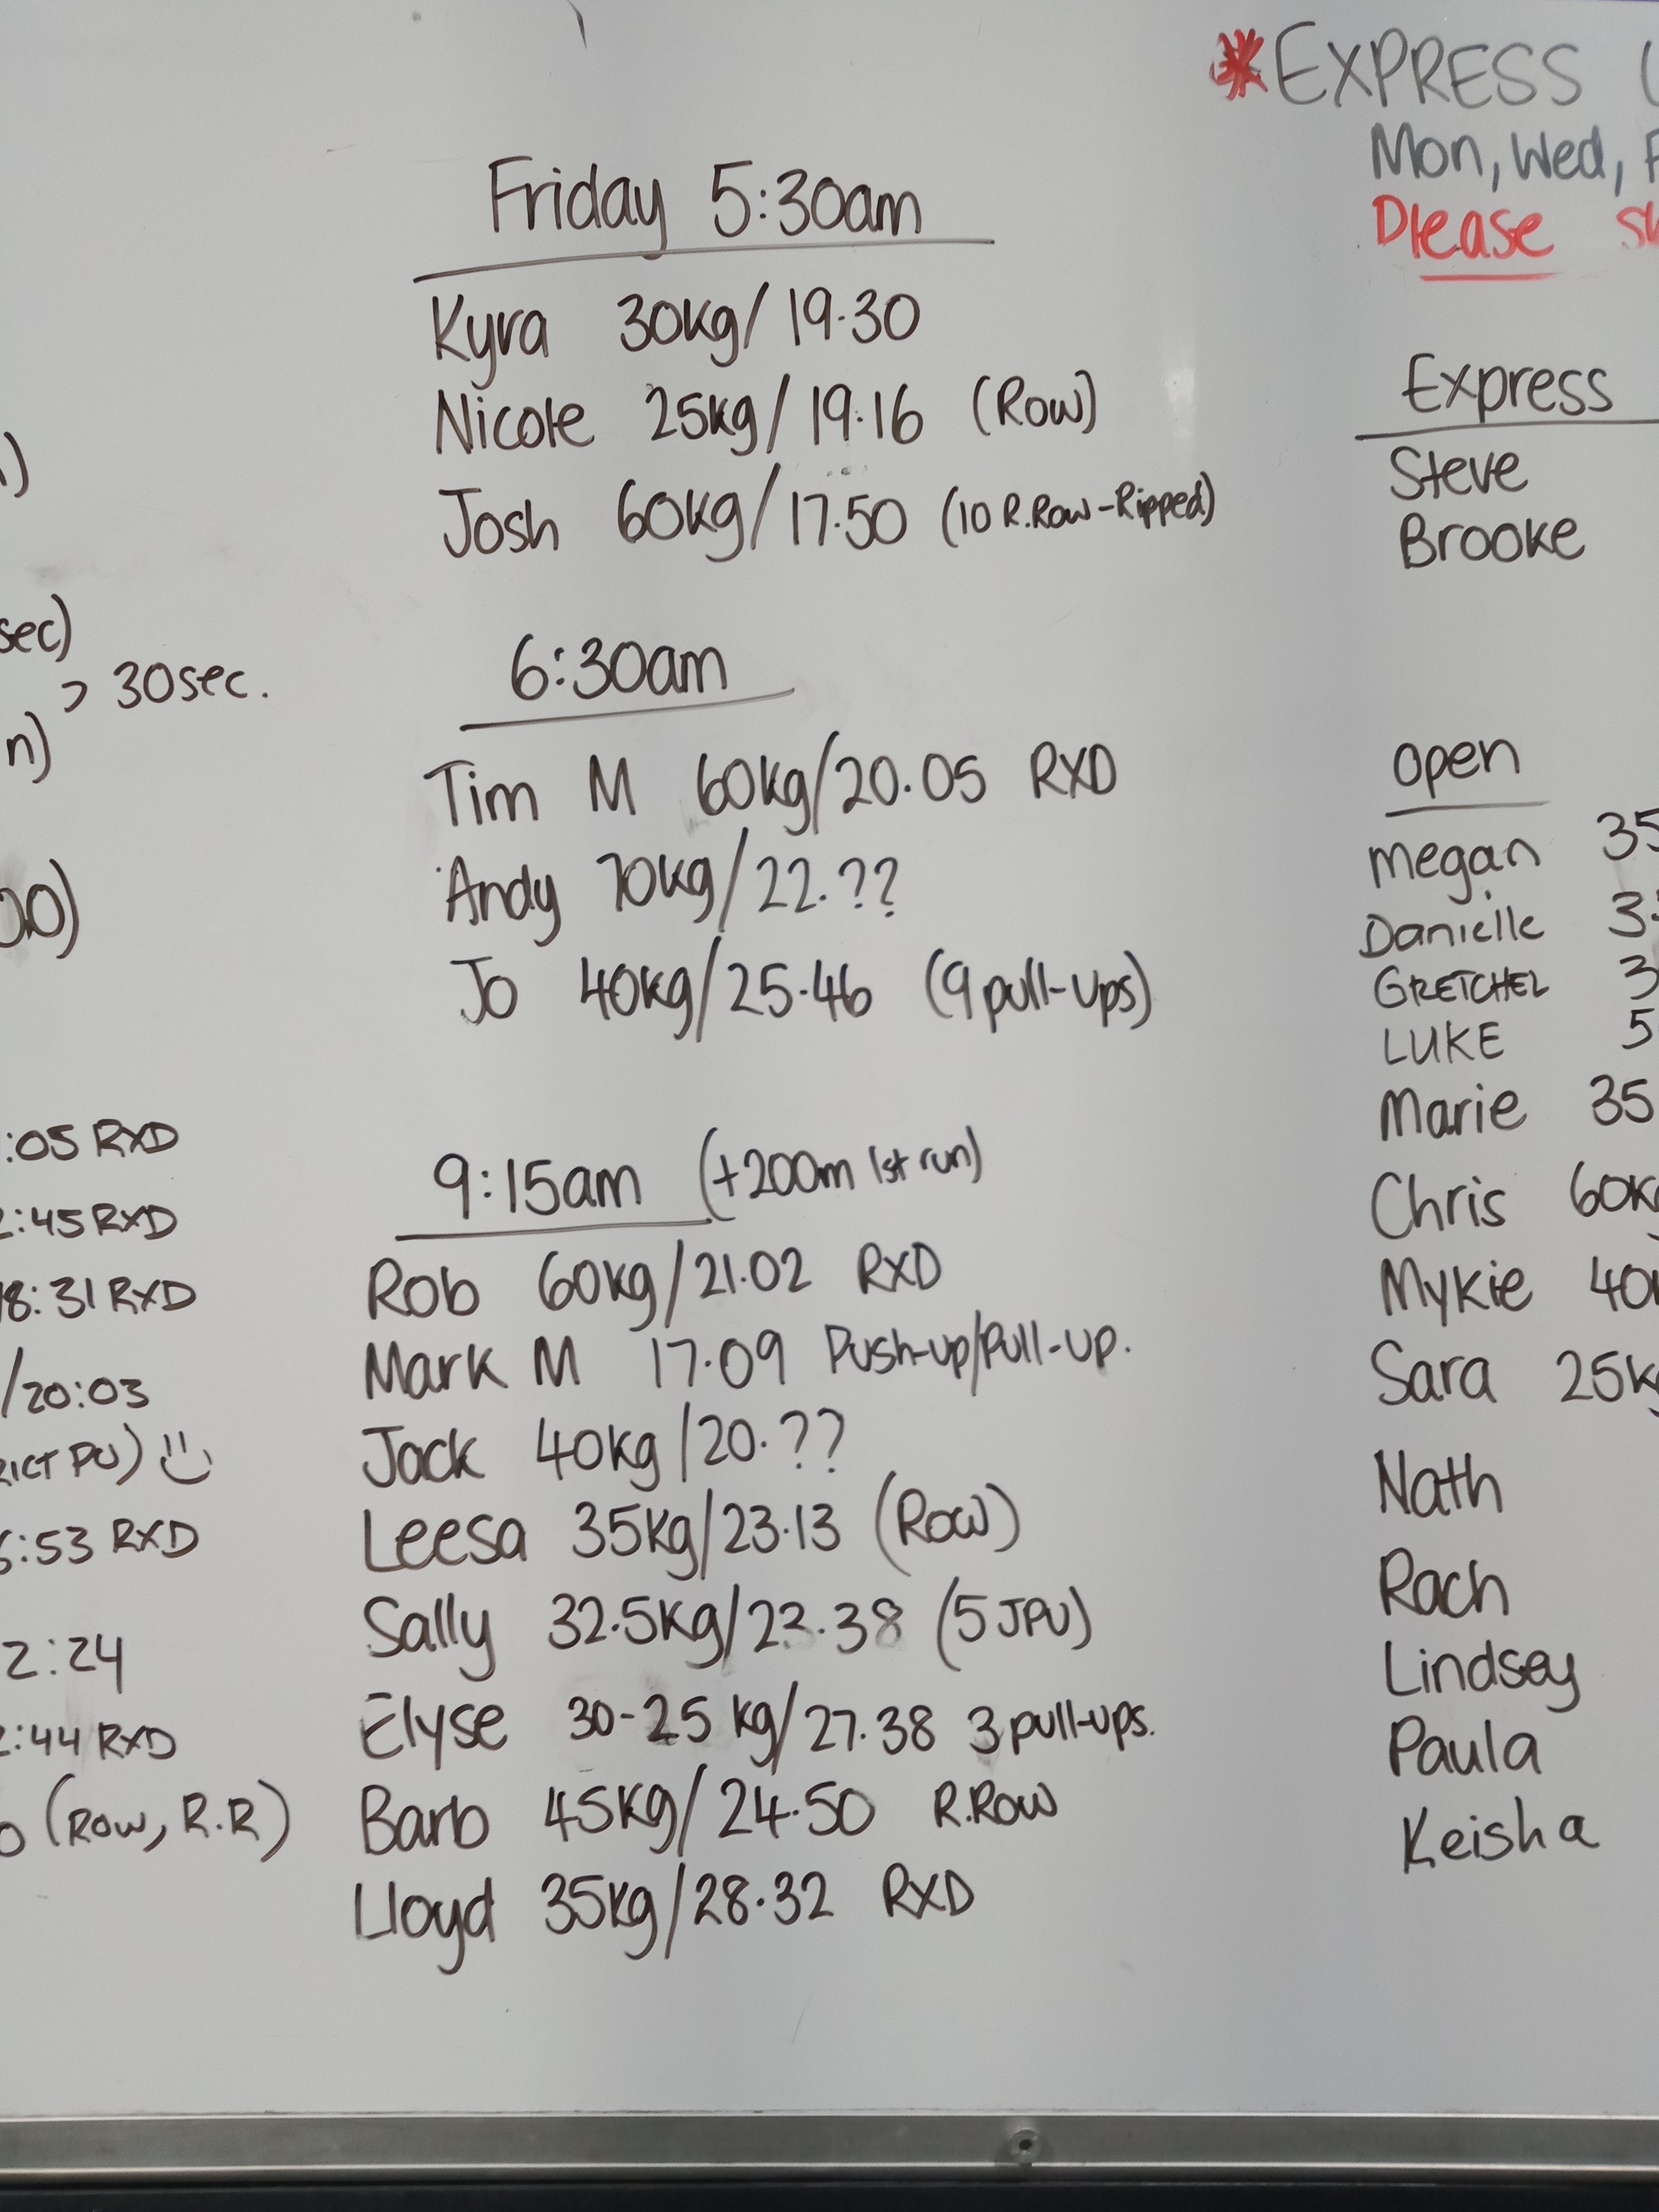 *EXPRESS
Mon, Wed,
Please
Friday 5:30am
Kyra 30kg/ 19.30
Nicole 25kg/ 19.16 (Row)
Josh 60kg/ 17.50 (10 R.Row-Ripped)
6:30am
Tim M 60kg/20.05 RXD
Andy 70kg/22.??
Jo 40kg/25.46 (9 pull-ups)
9:15am (+200m 1st run)
Rob 60kg/21.02 RXD
Mark M 17.09 Push-up/Pull-up.
Jack 40kg/20.??
Leesa 35kg/23.13 (Row)
Sally 32.5kg/23.38 (5 JPU)
Elyse 30-25 kg/27.38 3 pull-ups.
Barb 45kg/24.50 R.Row
Lloyd 35kg/28.32 RXD
sec)
> 30sec.
:05 RXD
:45 RXD
8:31 RXD
/20:03
PU)
:53 RXD
2:24
:44 RXD
(Row, R.R)
Express
Steve
Brooke
Open
Megan 35
Danielle 3
GRETCHEL 3
LUKE 5
Marie 35
Chris 60k
Mykie 40
Sara 25k
Nath
Rach
Lindsey
Paula
Keisha